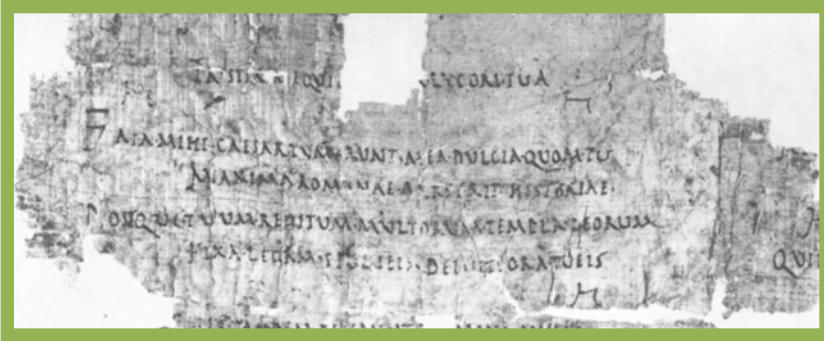 LYCORI·TVA
FATA·MIHI·CAESAR·TVM·ERVNT·MEA·DVLCIA·QVOM·TV
MAXIMA·ROMANAE·PARS·ERIT·HISTORIAE
POSTQVE·TVVM·REDITVM·MVLTORVM·TEMPLA·DEORVM
FIXA·LEGAM·SPOLIEIS·DEIVITIORA·TVEIS
QVI